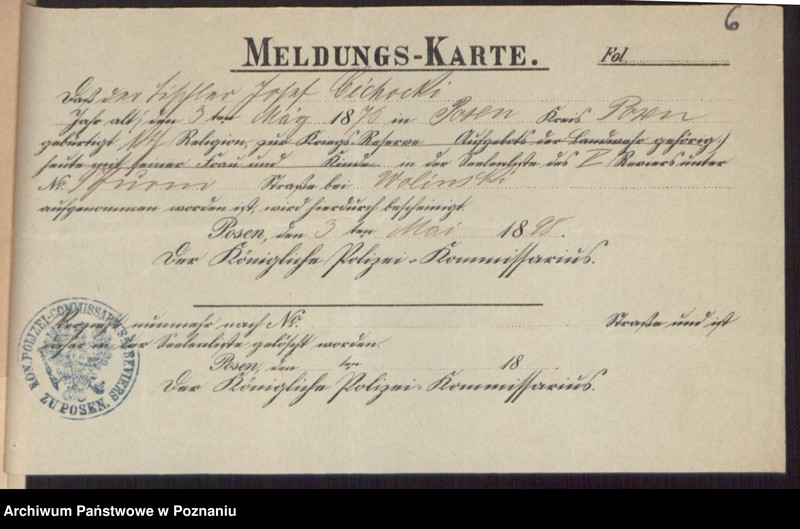 6
MELDUNGS-KARTE. Fol.
Daß der Tischler Josef Cichocki
Jahr alt, den 3 ten März 1875 in Posen Kreis Posen
gebürtigt kth Religion, zur Kriegs Reserve Aufgebots der Landwehr gehörig,)
heute mit seiner Frau und Kinde in der Seelenliste des V Reviers unter
No. 9 Thurm Straße bei Wolinski
aufgenommen worden ist, wird hierdurch bescheinigt.
Posen, den 3 ten Mai 1898.
Der Königliche Polizei-Kommissarius.
Verzieht nunmehr nach No. Straße und ist
daher in der Seelenliste gelöscht worden.
Posen, den ten 18
Der Königliche Polizei-Kommissarius.
KÖN. POLIZEI-COMMISSARIUS REVIERS
ZU POSEN.
Archiwum Państwowe w Poznaniu